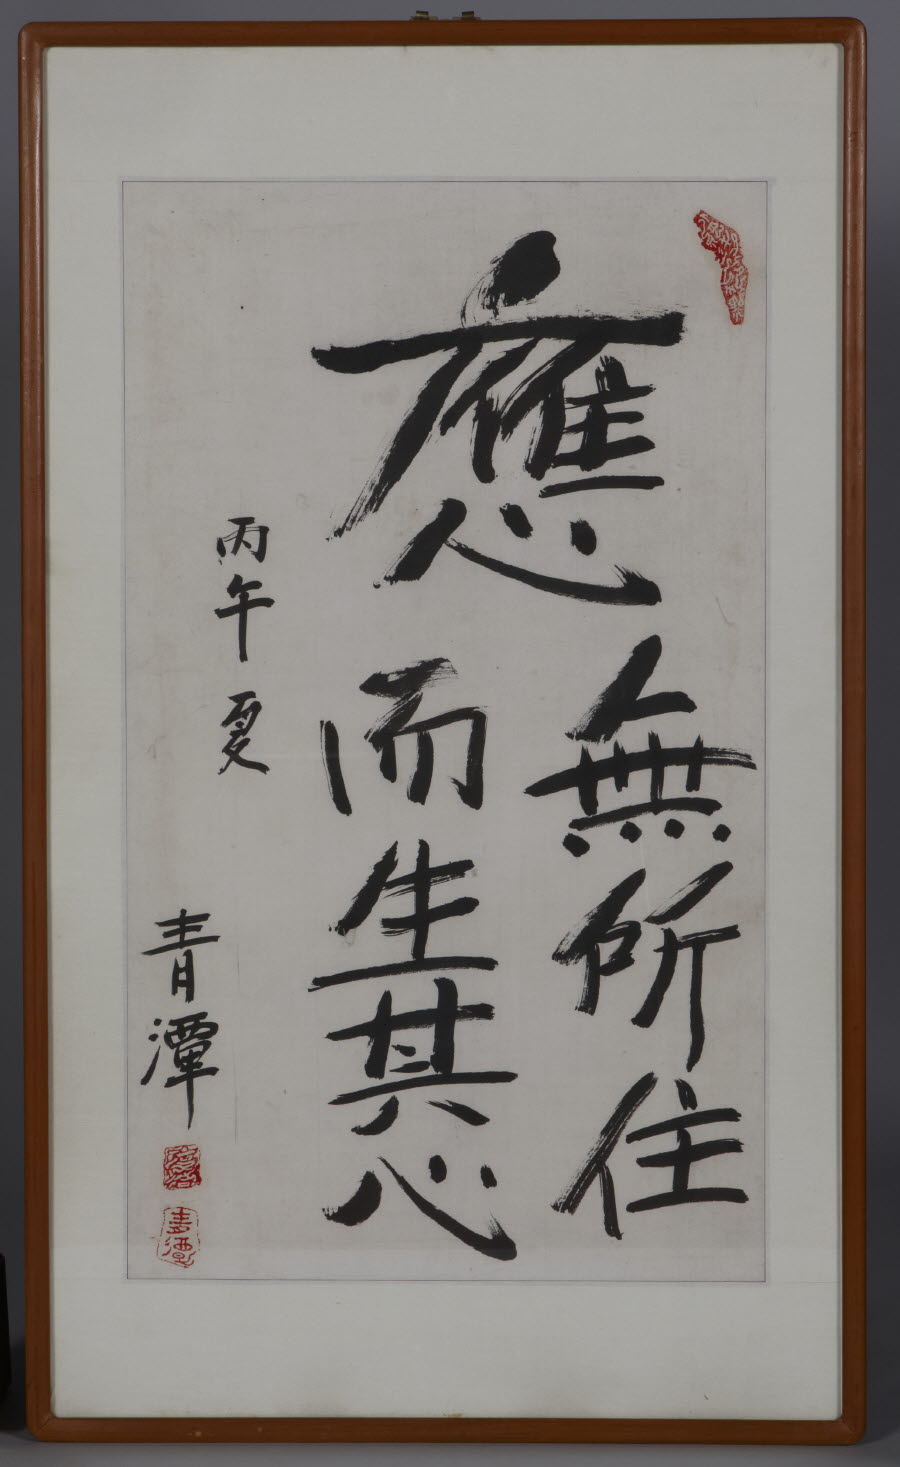 應無所住
而生其心
丙午夏
青潭
青潭